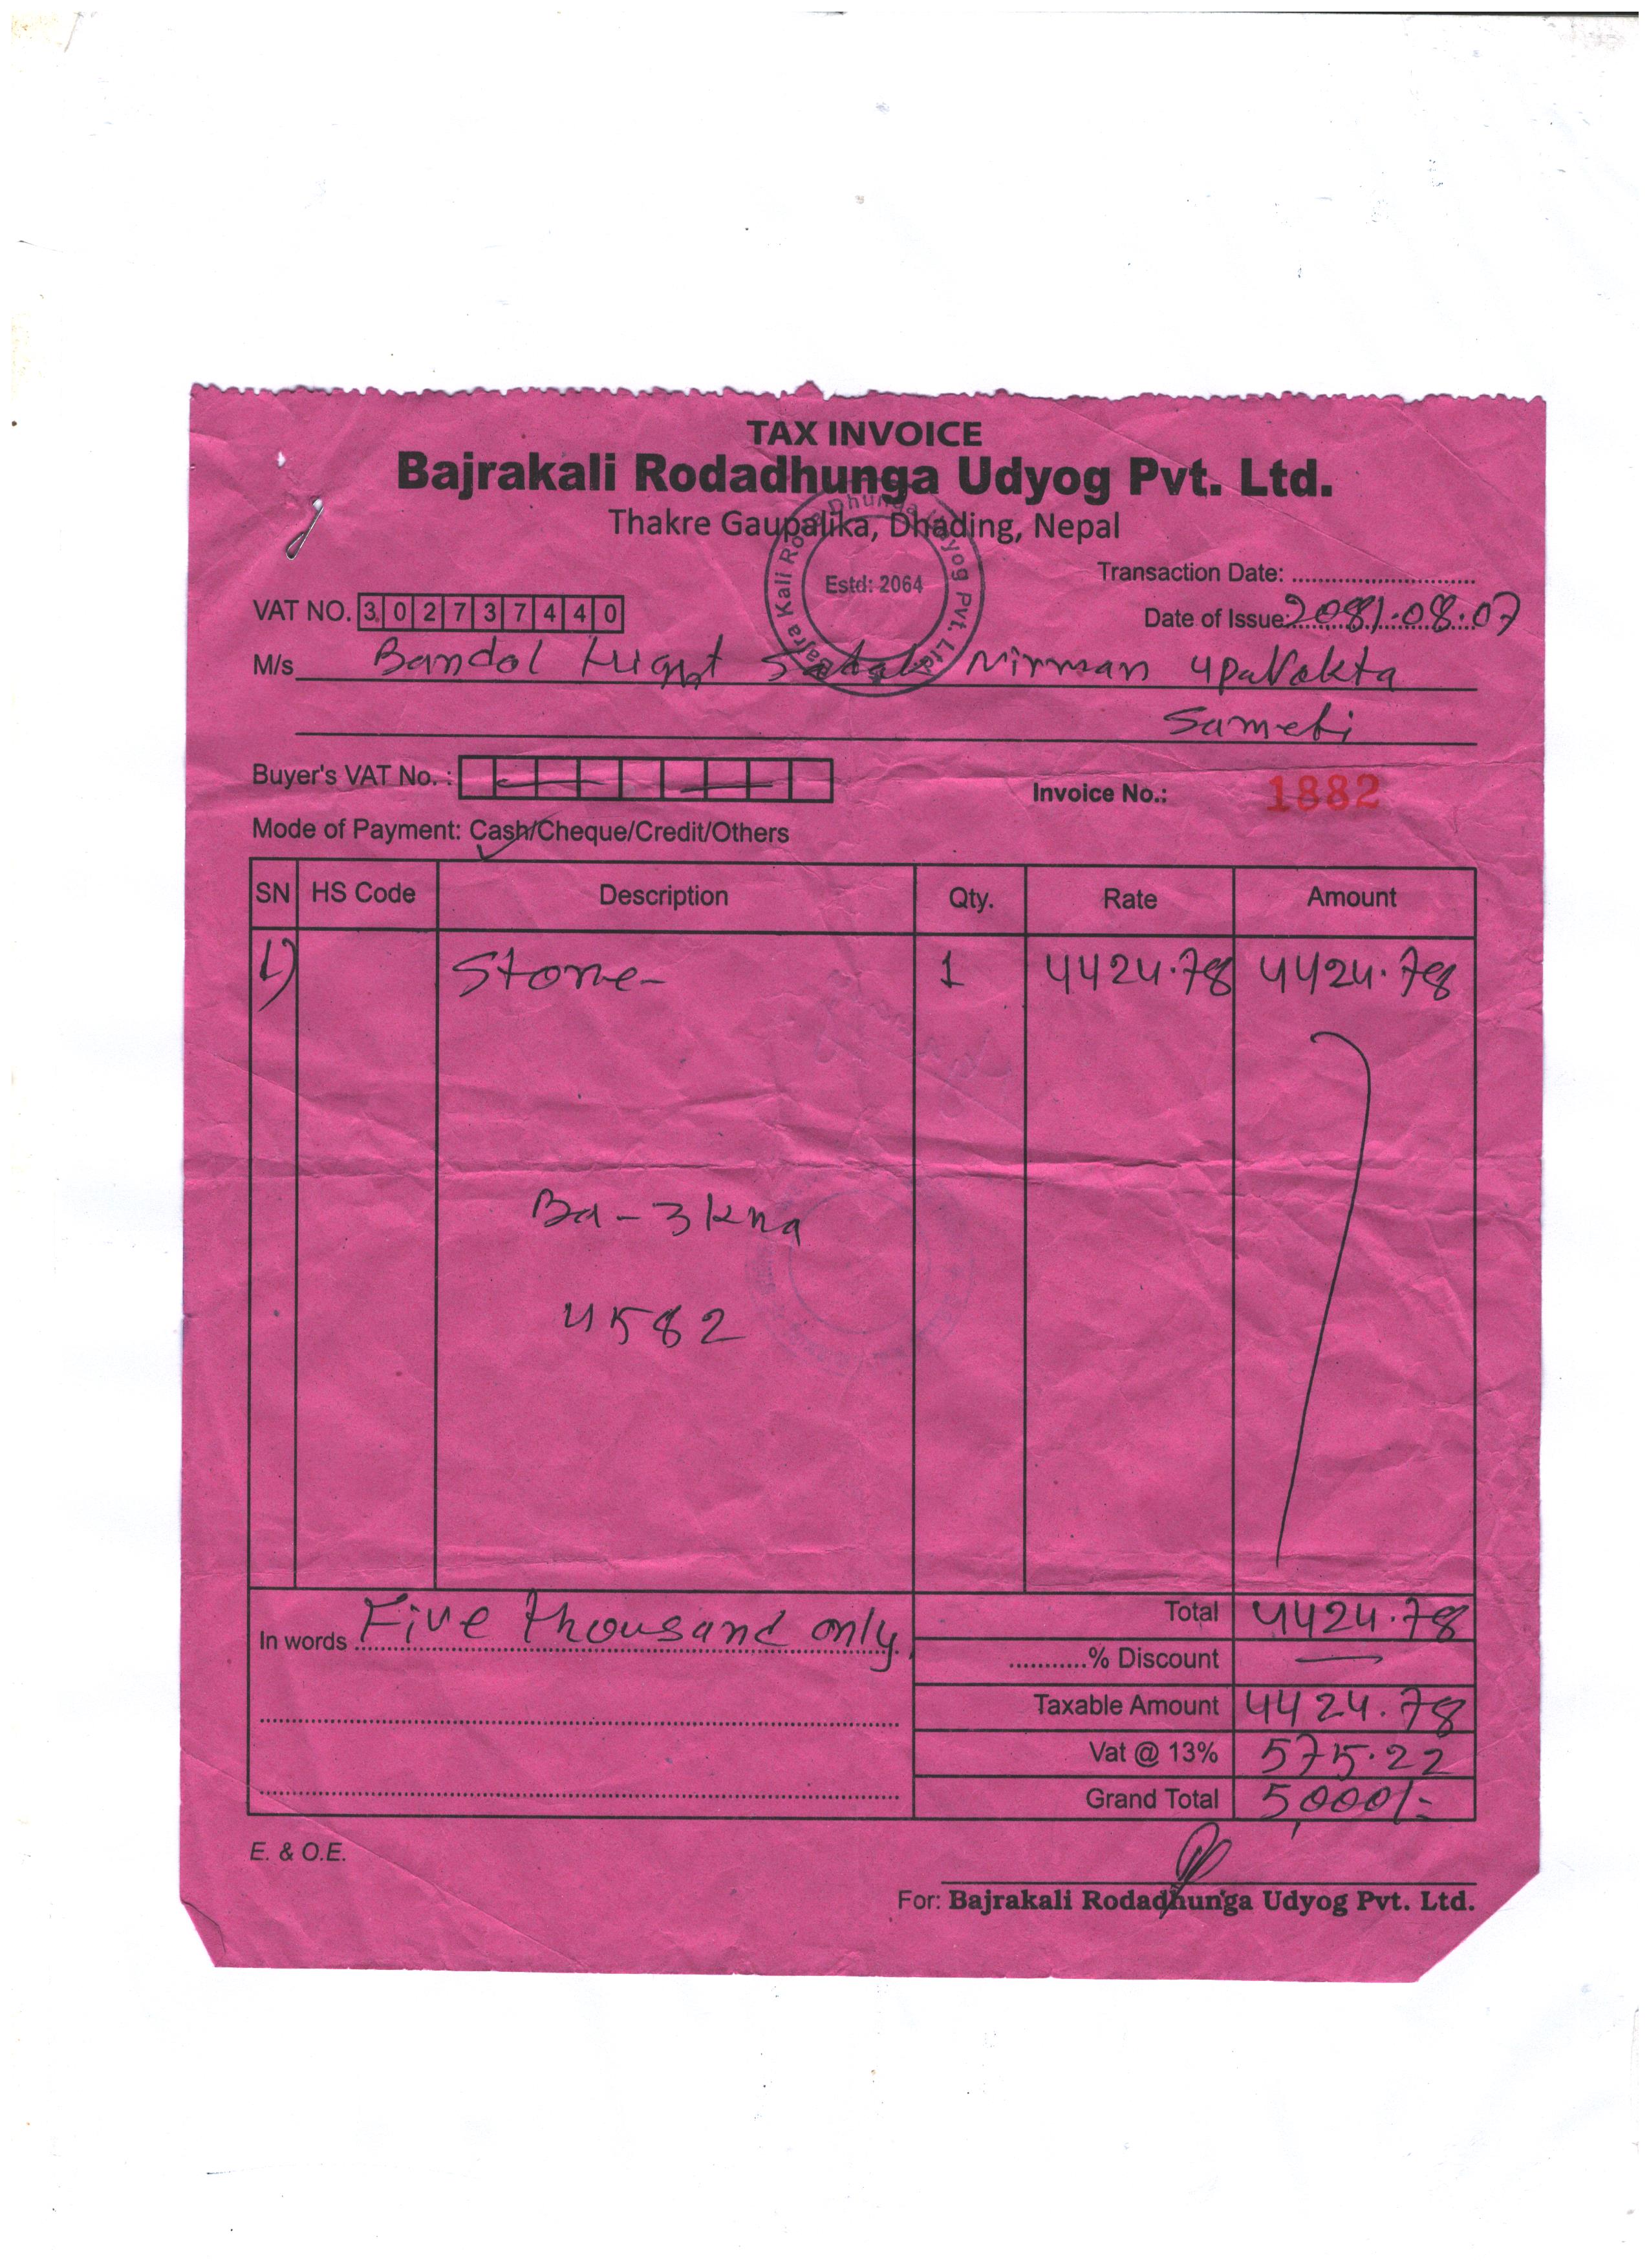 TAX INVOICE
Bajrakali Rodadhunga Udyog Pvt. Ltd.
Thakre Gaupalika, Dhading, Nepal
Bajra Kali Roda Dhunga Udyog Pvt. Ltd.
Estd: 2064
Transaction Date: ............................
VAT NO. 302737440
Date of Issue: 2081.08.07
M/s Bandol Hight Sadak Nirman upavokta
Sameti
Buyer's VAT No. :
Invoice No.: 1882
Mode of Payment: Cash/Cheque/Credit/Others
SN HS Code Description Qty. Rate Amount
1) Stone- 1 4424.78 4424.78
Ba-3kha
4582
In words Five thousand only.
Total 4424.78
...........% Discount —
Taxable Amount 4424.78
Vat @ 13% 575.22
Grand Total 5,000/-
E. & O.E.
For: Bajrakali Rodadhunga Udyog Pvt. Ltd.